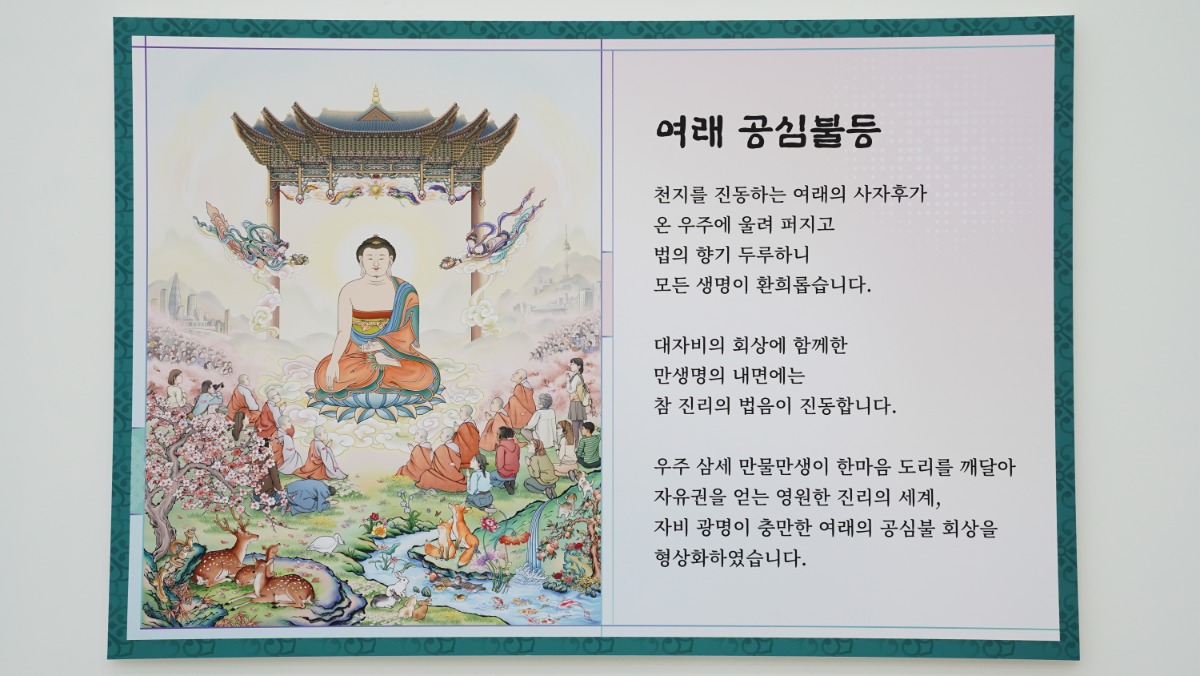 여래 공심불등
천지를 진동하는 여래의 사자후가
온 우주에 울려 퍼지고
법의 향기 두루하니
모든 생명이 환희롭습니다.
대자비의 회상에 함께한
만생명의 내면에는
참 진리의 법음이 진동합니다.
우주 삼세 만물만생이 한마음 도리를 깨달아
자유권을 얻는 영원한 진리의 세계,
자비 광명이 충만한 여래의 공심불 회상을
형상화하였습니다.